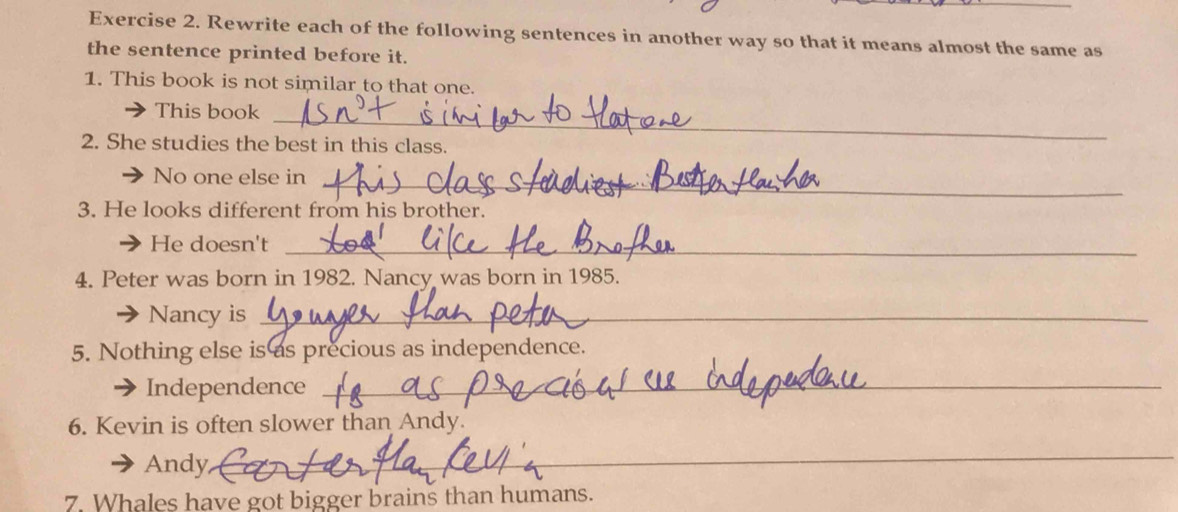 Exercise 2. Rewrite each of the following sentences in another way so that it means almost the same as
the sentence printed before it.
1. This book is not similar to that one.
→ This book isn't similar to that one
2. She studies the best in this class.
→ No one else in this class studiest Better
3. He looks different from his brother.
→ He doesn't like the Brother
4. Peter was born in 1982. Nancy was born in 1985.
→ Nancy is younger than peter
5. Nothing else is as precious as independence.
→ Independence is as precious as independence
6. Kevin is often slower than Andy.
→ Andy than Kevin
7. Whales have got bigger brains than humans.